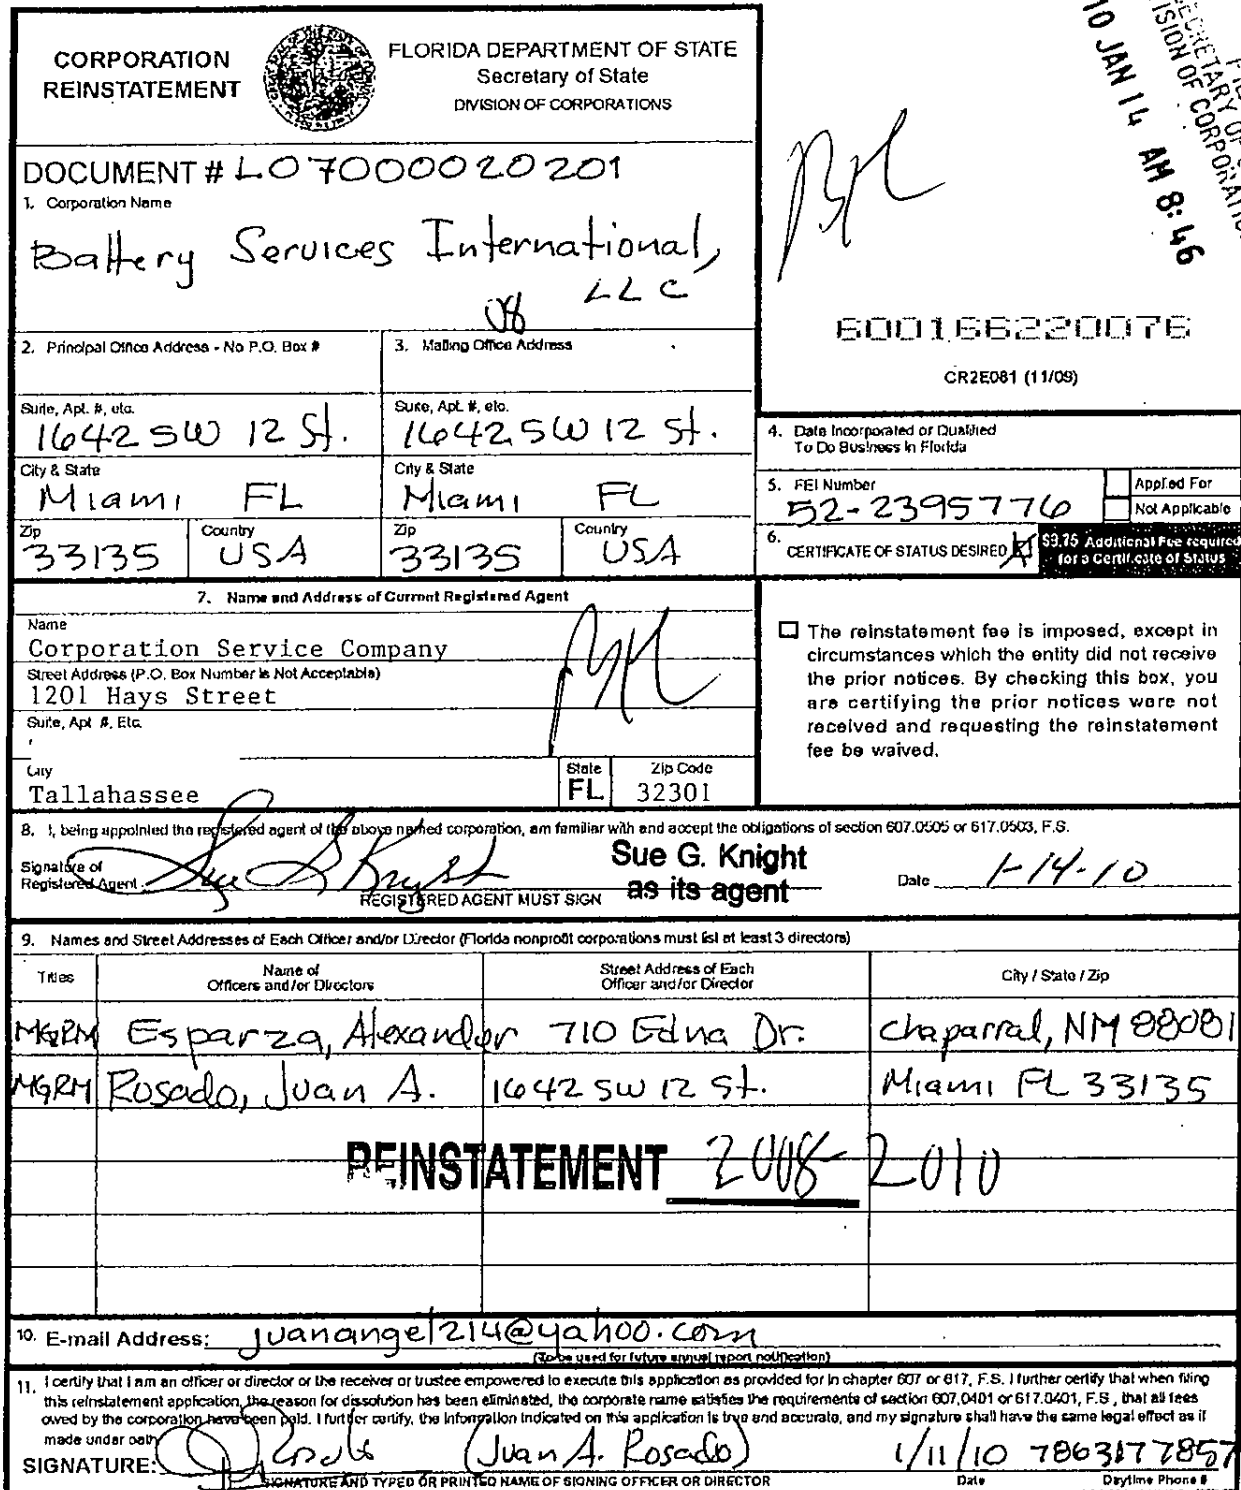 CORPORATION
REINSTATEMENT
FLORIDA DEPARTMENT OF STATE
Secretary of State
DIVISION OF CORPORATIONS
10 JAN 14 AM 8:46
SECRETARY OF
DIVISION OF CORPORATION
DOCUMENT # L07000020201
1. Corporation Name
Battery Services International,
LLC
600166220076
CR2E081 (11/09)
2. Principal Office Address - No P.O. Box #
3. Mailing Office Address
Suite, Apt. #, etc.
1642 SW 12 St.
Suite, Apt. #, etc.
1642 SW 12 St.
City & State
Miami FL
City & State
Miami FL
Zip
33135
Country
USA
Zip
33135
Country
USA
4. Date Incorporated or Qualified
To Do Business in Florida
5. FEI Number
52-2395776
Applied For
Not Applicable
6. CERTIFICATE OF STATUS DESIRED
$8.75 Additional Fee required
for a Certificate of Status
7. Name and Address of Current Registered Agent
Name
Corporation Service Company
Street Address (P.O. Box Number is Not Acceptable)
1201 Hays Street
Suite, Apt #, Etc.
City
Tallahassee
State
FL
Zip Code
32301
The reinstatement fee is imposed, except in
circumstances which the entity did not receive
the prior notices. By checking this box, you
are certifying the prior notices were not
received and requesting the reinstatement
fee be waived.
8. I, being appointed the registered agent of the above named corporation, am familiar with and accept the obligations of section 607.0505 or 617.0503, F.S.
Signature of
Registered Agent
Sue G Knight
REGISTERED AGENT MUST SIGN
Sue G. Knight
as its agent
Date 1-14-10
9. Names and Street Addresses of Each Officer and/or Director (Florida nonprofit corporations must list at least 3 directors)
Titles
Name of
Officers and/or Directors
Street Address of Each
Officer and/or Director
City / State / Zip
MGRM Esparza, Alexander 710 Edna Dr. Chaparral, NM 88081
MGRM Rosado, Juan A. 1642 SW 12 St. Miami FL 33135
REINSTATEMENT 2008-2010
10. E-mail Address: juanangel214@yahoo.com
(To be used for future annual report notification)
11. I certify that I am an officer or director or the receiver or trustee empowered to execute this application as provided for in chapter 607 or 617, F.S. I further certify that when filing
this reinstatement application, the reason for dissolution has been eliminated, the corporate name satisfies the requirements of section 607.0401 or 617.0401, F.S., that all fees
owed by the corporation have been paid. I further certify, the information indicated on this application is true and accurate, and my signature shall have the same legal effect as if
made under oath.
SIGNATURE: (Juan A. Rosado) 1/11/10 7863177857
SIGNATURE AND TYPED OR PRINTED NAME OF SIGNING OFFICER OR DIRECTOR
Date
Daytime Phone #